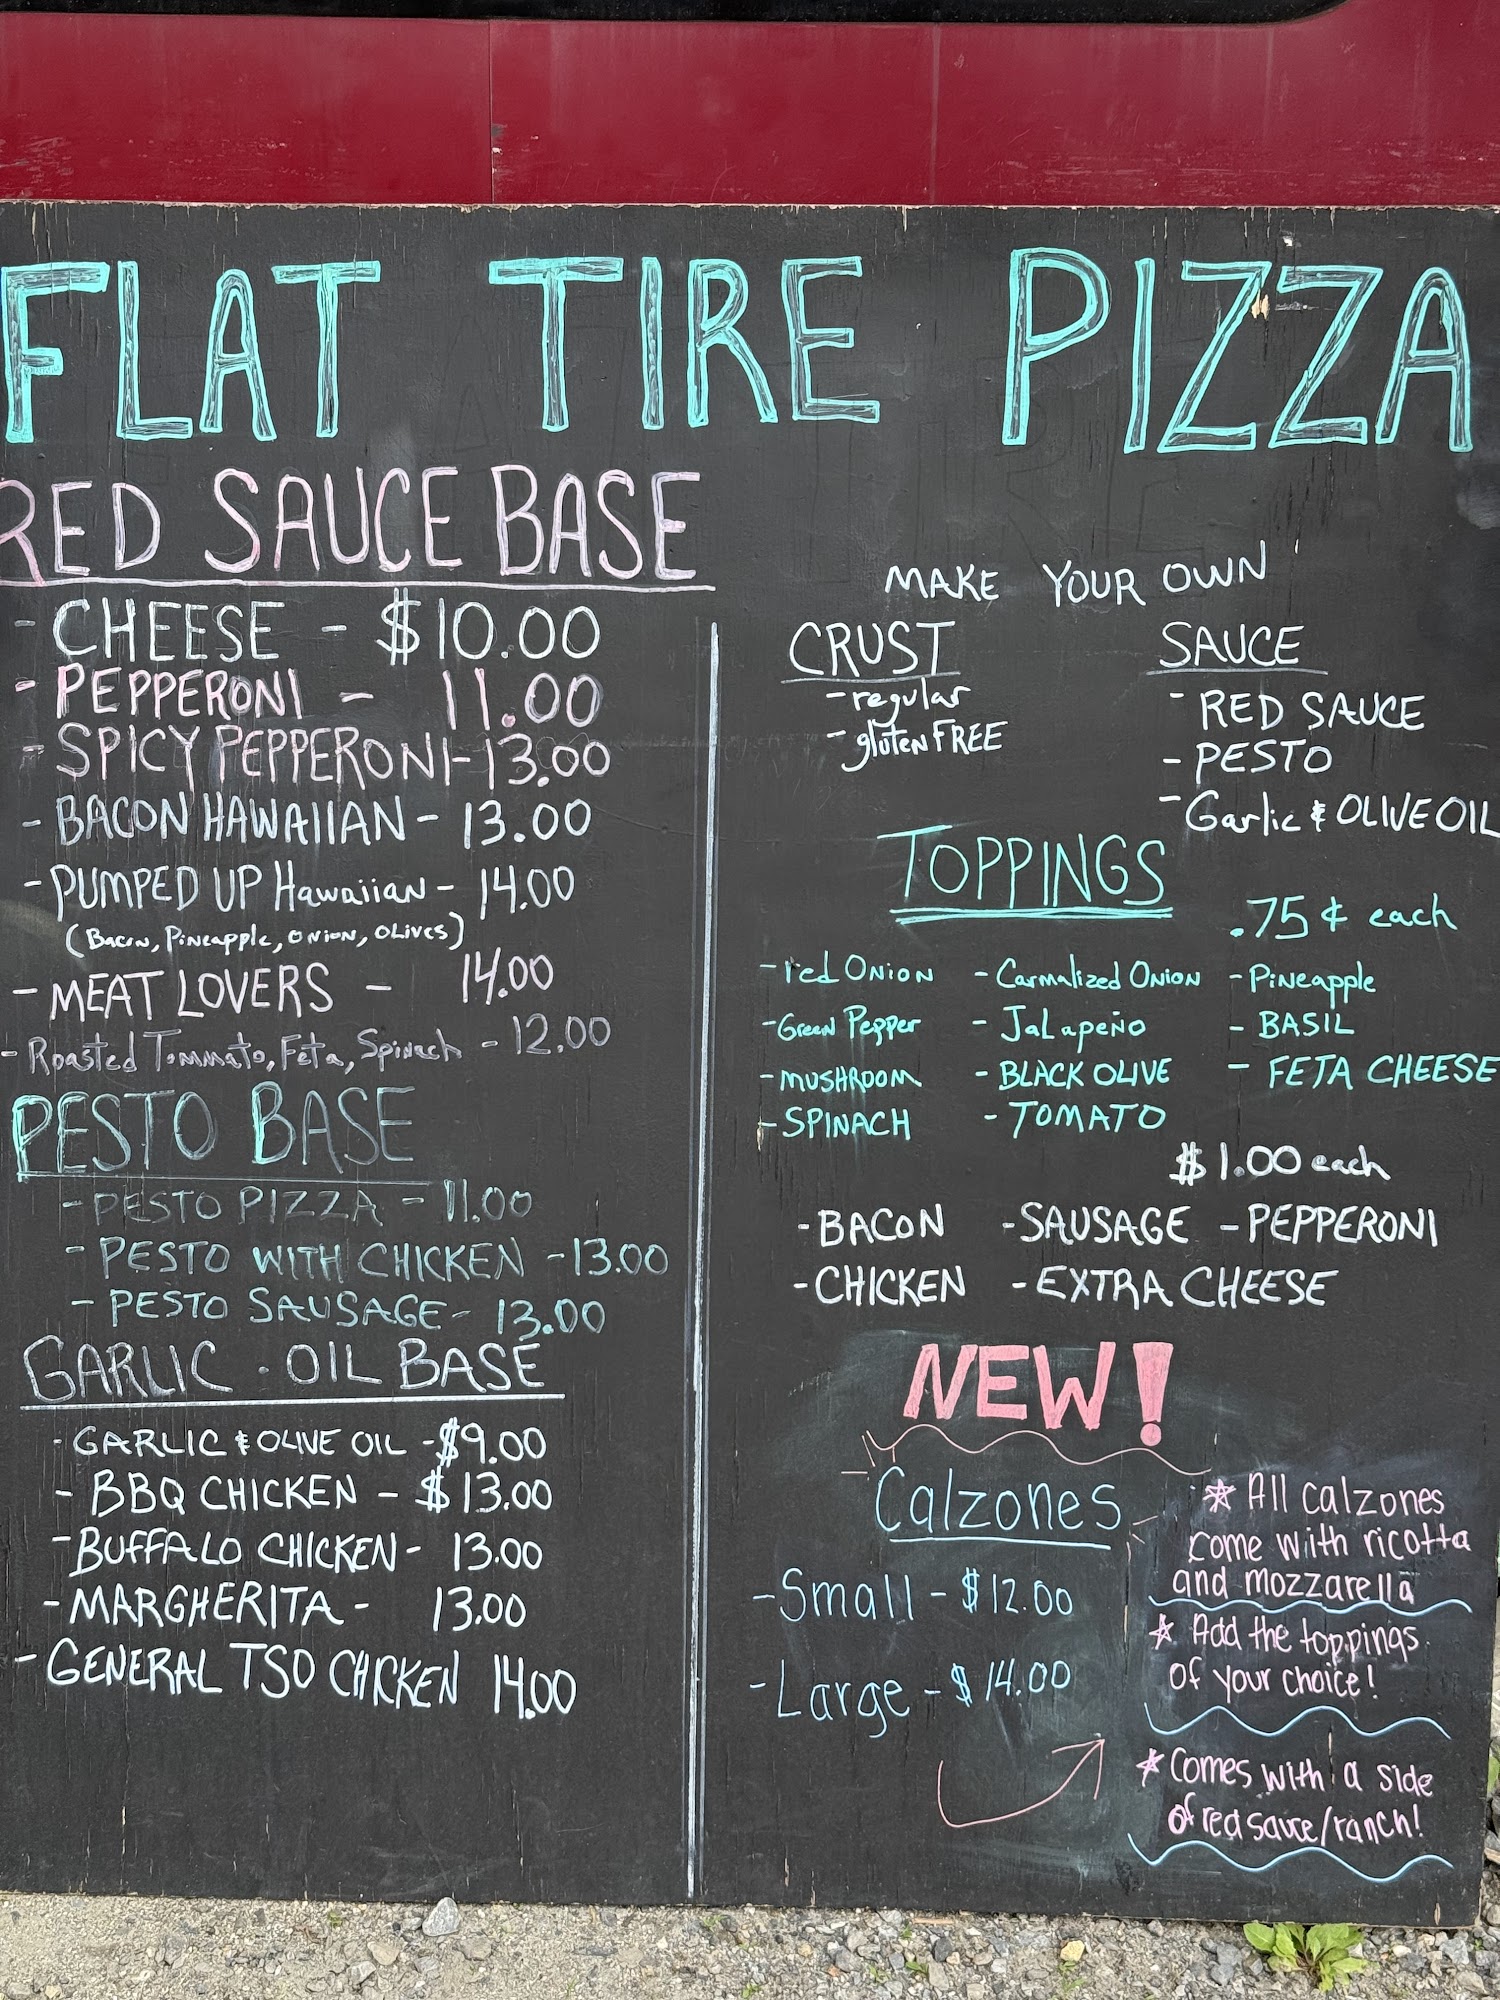 FLAT TIRE PIZZA
RED SAUCE BASE
- CHEESE - $10.00
- PEPPERONI - 11.00
- SPICY PEPPERONI - 13.00
- BACON HAWAIIAN - 13.00
- PUMPED UP Hawaiian - 14.00
(Bacon, Pineapple, onion, olives)
- MEAT LOVERS - 14.00
- Roasted Tommato, Feta, Spinach - 12.00
PESTO BASE
- PESTO PIZZA - 11.00
- PESTO WITH CHICKEN - 13.00
- PESTO SAUSAGE - 13.00
GARLIC · OIL BASE
- GARLIC & OLIVE OIL - $9.00
- BBQ CHICKEN - $13.00
- BUFFALO CHICKEN - 13.00
- MARGHERITA - 13.00
- GENERAL TSO CHICKEN 14.00
MAKE YOUR OWN
CRUST
- regular
- gluten FREE
SAUCE
- RED SAUCE
- PESTO
- Garlic & OLIVE OIL
TOPPINGS
.75¢ each
- red Onion - Carmalized Onion - Pineapple
- Green Pepper - Jalapeño - BASIL
- MUSHROOM - BLACK OLIVE - FETA CHEESE
- SPINACH - TOMATO
$1.00 each
- BACON - SAUSAGE - PEPPERONI
- CHICKEN - EXTRA CHEESE
NEW!
Calzones
- Small - $12.00
- Large - $14.00
* All calzones
come wiith ricotta
and mozzarella
* Add the toppings
of your choice!
* Comes with a side
of red sauce/ranch!